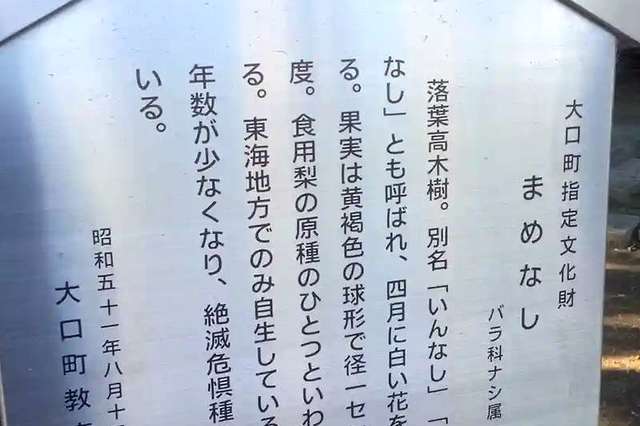 大口町指定文化財
まめなし
バラ科ナシ属
落葉高木樹。別名「いんなし」「
なし」とも呼ばれ、四月に白い花を
る。果実は黄褐色の球形で径一セ
度。食用梨の原種のひとつといわ
る。東海地方でのみ自生している
年数が少なくなり、絶滅危惧種
いる。
昭和五十一年八月十
大口町教